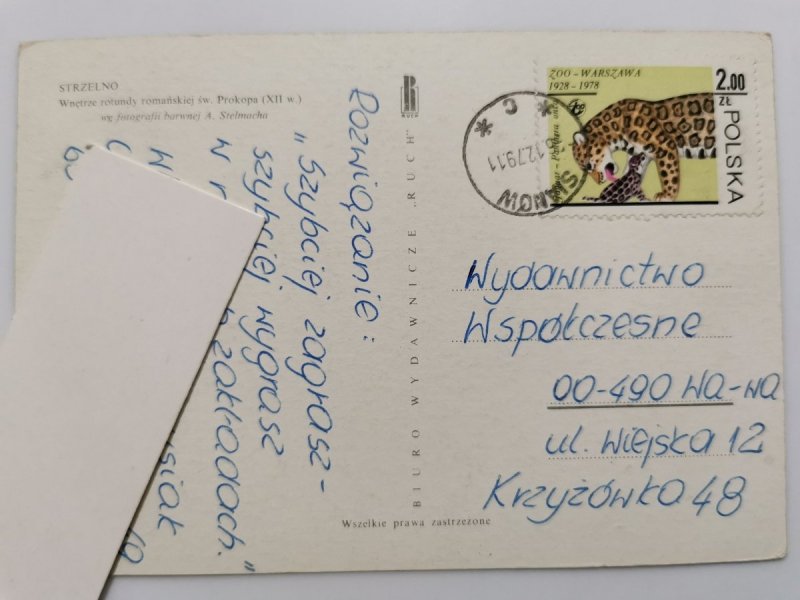 STRZELNO
Wnętrze rotundy romańskiej św. Prokopa (XII w.)
wg fotografii barwnej A. Stelmacha
RUCH
BIURO WYDAWNICZE „RUCH"
Wszelkie prawa zastrzeżone
Rozwiązanie:
„Szybciej zagrasz-
szybciej wygrasz
w zakładach."
ZOO-WARSZAWA
1928-1978
2.00
ZŁ
POLSKA
12.79.11
C
Wydawnictwo
Współczesne
00-490 Wa-wa
ul. Wiejska 12
Krzyżówka 48